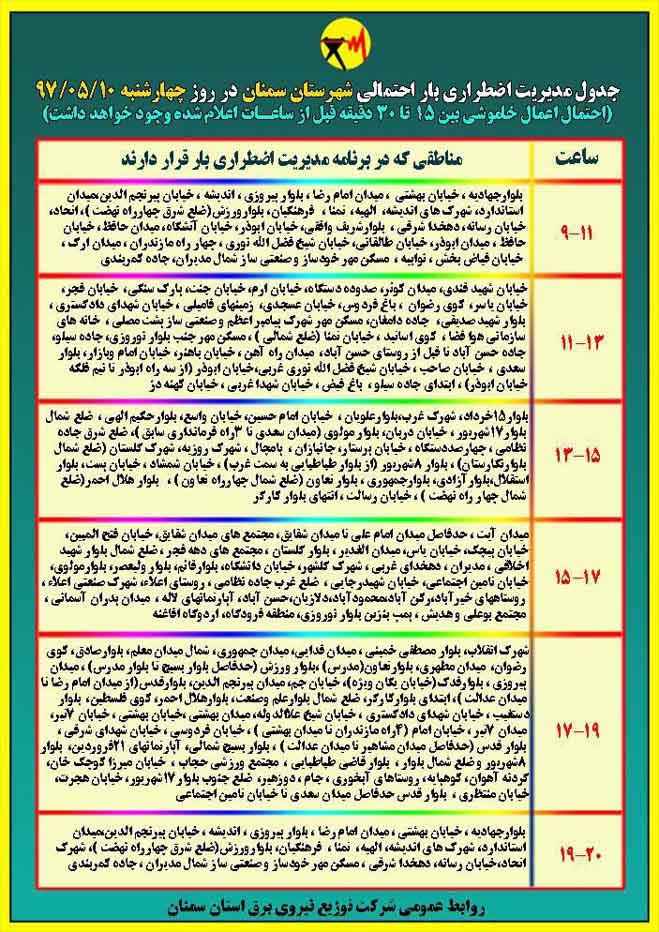 جدول مدیریت اضطراری بار احتمالی شهرستان سمنان در روز چهارشنبه ۹۷/۰۵/۱۰
(احتمال اعمال خاموشی بین ۱۵ تا ۳۰ دقیقه قبل از ساعات اعلام شده وجود خواهد داشت)
ساعت
مناطقی که در برنامه مدیریت اضطراری بار قرار دارند
۹-۱۱
بلوارجهادیه ، خیابان بهشتی ، میدان امام رضا ، بلوار پیروزی ، اندیشه ، خیابان پیرنجم الدین،میدان
استاندارد، شهرک های اندیشه، الهیه، تمنا ، فرهنگیان، بلوارورزش(ضلع شرق چهارراه نهضت )، اتحاد،
خیابان رسانه، دهخدا شرقی ، بلوارشریف واقفی، خیابان ابوذر، خیابان آتشگاه، میدان حافظ، خیابان
حافظ ، میدان ابوذر، خیابان طالقانی، خیابان شیخ فضل الله نوری ، چهار راه مازندران ، میدان ارک ،
خیابان فیاض بخش ، توابیه ، مسکن مهر خودساز و صنعتی ساز شمال مدیران، جاده کمربندی
۱۱-۱۳
خیابان شهید قندی، میدان کوثر، صدوده دستگاه، خیابان ارم، خیابان جنت، پارک سنگی، خیابان فجر،
خیابان یاسر، کوی رضوان ، باغ فردوس، خیابان عسجدی، زمینهای فامیلی ، خیابان شهدای دادگستری ،
بلوار شهید صدیقی، جاده دامغان، مسکن مهر شهرک پیامبر اعظم و صنعتی ساز پشت مصلی ، خانه های
سازمانی هوا فضا ، کوی اساتید ، خیابان تمنا (ضلع شمالی ) ، مسکن مهر جنب بلوار نوروزی، جاده سیلو،
جاده حسن آباد تا قبل از روستای حسن آباد، میدان راه آهن، خیابان باهنر، خیابان امام وبازار، بلوار
سعدی ، خیابان صاحب ، خیابان شیخ فضل الله نوری غربی،خیابان ابوذر (از سه راه ابوذر تا نیم فلکه
خیابان ابوذر) ، ابتدای جاده سیلو ، باغ فیض ، خیابان شهدا غربی ، خیابان کهنه دژ
۱۳-۱۵
بلوار۱۵خرداد، شهرک غرب،بلوارعلویان ، خیابان امام حسین، خیابان واسع، بلوارحکیم الهی ، ضلع شمال
بلوار۱۷شهریور ، خیابان دربان، بلوار مولوی (میدان سعدی تا ۳راه فرمانداری سابق)، ضلع شرق جاده
نظامی ، چهارصددستگاه ، خیابان پرستار، جانبازان ، بامچال ، شهرک روزبه، شهرک گلستان (ضلع شمال
بلوارنگارستان) ، بلوار ۸شهریور (از بلوار طباطبایی به سمت غرب) ، خیابان شمشاد ، خیابان بست، بلوار
استقلال،بلوارآزادی، بلوارجمهوری ، بلوار تعاون (ضلع شمال چهارراه تعاون ) ، بلوار هلال احمر(ضلع
شمال چهار راه نهضت ) ، خیابان رسالت ، انتهای بلوار کارگر
۱۵-۱۷
میدان آیت ، حدفاصل میدان امام علی تا میدان شقایق، مجتمع های میدان شقایق، خیابان فتح المبین،
خیابان پیچک، خیابان یاس، میدان الغدیر ، بلوار گلستان ، مجتمع های دهه فجر، ضلع شمال بلوار شهید
اخلاقی ، مدیران ، دهخدای غربی ، شهرک گلشهر، خیابان دانشگاه، بلوارقائم، بلوار ولیعصر، بلوارمولوی،
خیابان تامین اجتماعی، خیابان شهیدرجایی ، ضلع غرب جاده نظامی ، روستای اعلاء، شهرک صنعتی اعلاء ،
روستاهای خیرآباد،رکن آباد،محمودآباد،دلازیان،حسن آباد، آپارتمانهای لاله ، میدان پدران آسمانی ،
مجتمع بوعلی وهدیش ، پمپ بنزین بلوار نوروزی، منطقه فرودگاه، اردوگاه افاغنه
۱۷-۱۹
شهرک انقلاب، بلوار مصطفی خمینی ، میدان فدایی، میدان جمهوری، شمال میدان معلم، بلوارصادق، کوی
رضوان، میدان مطهری، بلوارتعاون(مدرس) ،بلوار ورزش (حدفاصل بلوار بسیج تا بلوار مدرس) ، میدان
پیروزی ، بلوارفدک (خیابان یکان ویژه)، خیابان جم، میدان پیرنجم الدین، بلوارقدس(از میدان امام رضا تا
میدان عدالت )، ابتدای بلوارکارگر، ضلع شمال بلوارعلم وصنعت، بلوارهلال احمر، کوی فلسطین، بلوار
دستغیب ، خیابان شهدای دادگستری ، خیابان شیخ علاالدوله، میدان بهشتی، خیابان بهشتی، خیابان ۷تیر،
میدان ۷تیر، خیابان امام (۴راه مازندران تا میدان بهشتی ) ، خیابان فردوسی ، خیابان شهدای شرقی ،
بلوار قدس (حدفاصل میدان مشاهیر تا میدان عدالت) ، بلوار بسیج شمالی، آپارتمانهای ۲۱فروردین، بلوار
۸شهریور و ضلع شمال بلوار ، بلوار قاضی طباطبایی ، مجتمع ورزشی حجاب ، خیابان میرزا کوچک خان،
گردنه آهوان، کوهپایه، روستاهای آبخوری ، جام ، دوزهیر، ضلع جنوب بلوار ۱۷شهریور، خیابان هجرت،
خیابان منتظری ، بلوار قدس حدفاصل میدان سعدی تا خیابان تامین اجتماعی
۱۹-۲۰
بلوارجهادیه ، خیابان بهشتی ، میدان امام رضا ، بلوار پیروزی ، اندیشه ، خیابان پیرنجم الدین،میدان
استاندارد، شهرک های اندیشه، الهیه، تمنا ، فرهنگیان، بلوارورزش(ضلع شرق چهارراه نهضت )، شهرک
اتحاد،خیابان رسانه، دهخدا شرقی ، مسکن مهر خودساز و صنعتی ساز شمال مدیران ، جاده کمربندی
روابط عمومی شرکت توزیع نیروی برق استان سمنان